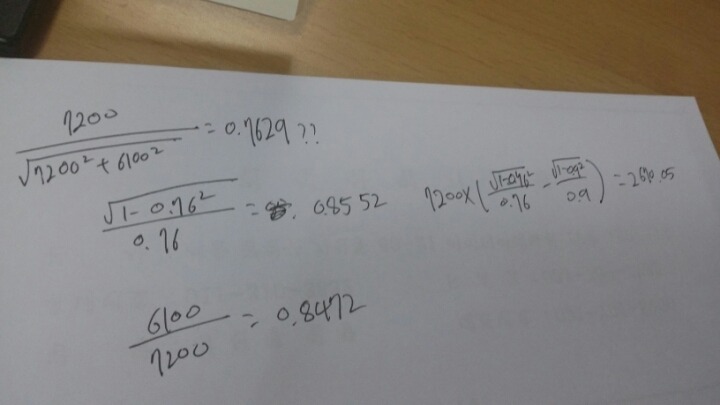 7200 / √7200² + 6100² = 0.7629 ??
√1 - 0.76² / 0.76 = 0.8552
7200 × ( √1-0.76² / 0.76 - √1-0.9² / 0.9 ) = 2670.05
6100 / 7200 = 0.8472